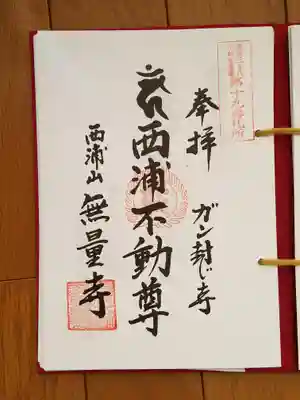 奉拝
ガン封じ寺
西浦不動尊
西浦山
無量寺